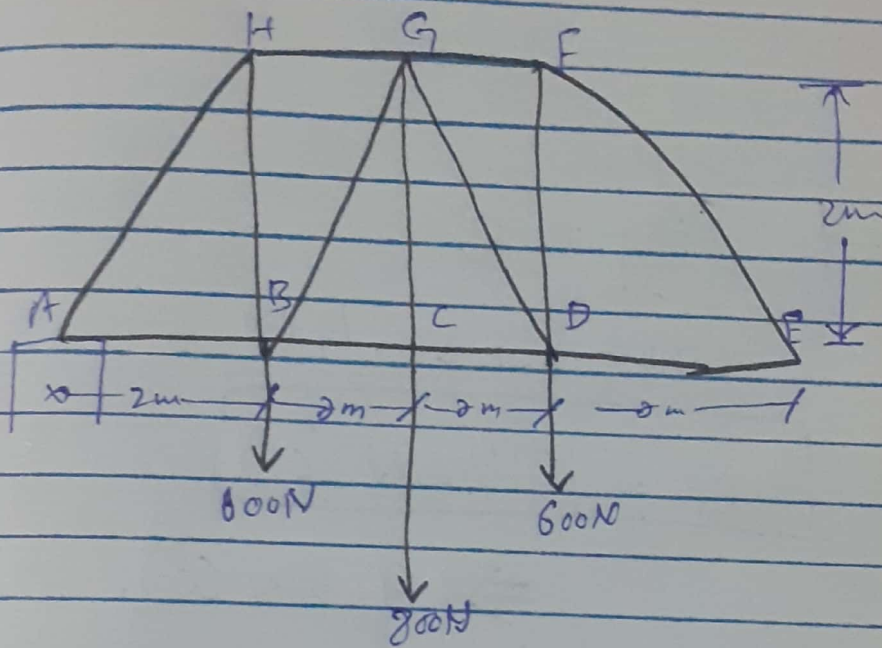 H G F
2m
A B C D E
2m 2m 2m 2m
600N 600N
800N